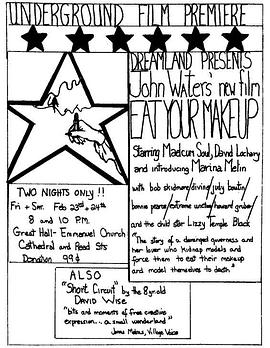 UNDERGROUND FILM PREMIERE
DREAMLAND PRESENTS
John Waters' new film
EAT YOUR MAKEUP
Starring Maelcum Soul, David Lochary
and introducing Marina Melin
with bob skidmore/divine/judy boutin/
bonnie pearce/extreme unction/howard gruber/
and the child star Lizzy Temple Black
"The story of a deranged governess and
her lover who kidnap models and
force them to eat their makeup
and model themselves to death."
TWO NIGHTS ONLY !!
Fri + Sat. Feb 23rd + 24th
8 and 10 P.M.
Great Hall - Emmanuel Church
Cathedral and Read Sts
Donation 99¢
ALSO
"Short Circuit" by the 8 yr old
DAVID WISE
"bits and moments of free creative
expression... a small wonderland"
Jonas Mekas, Village Voice